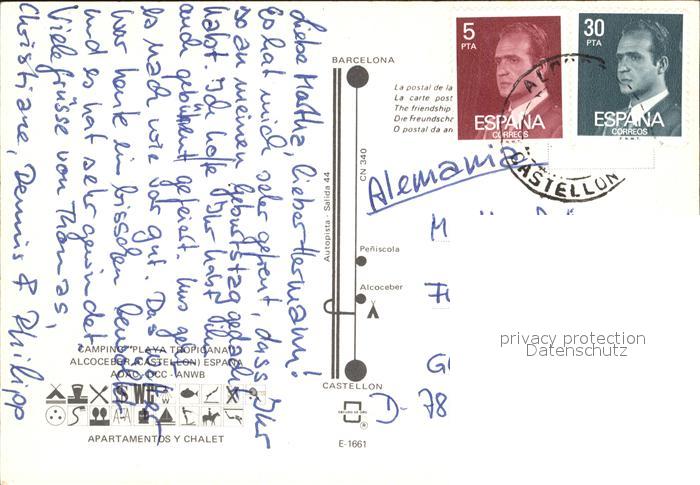 Liebe Martha, lieber Hermann!
Es hat mich sehr gefreut, dass Ihr
so an meinen Geburtstag gedacht
habt. Ich hoffe Ihr habt ihn
auch gebührend gefeiert. Uns geht
es nach wie vor gut. Das Wetter
war heute ein bisschen bewölkt
und es hat sehr gewindet.
Viele Grüsse von Thomas,
Christiane, Dennis & Philipp
BARCELONA
Autopista - Salida 44
CN 340
Peñiscola
Alcoceber
CASTELLON
E-1661
La postal de la
La carte post
The friendship
Die Freundsch
O postal da an
CAMPING "PLAYA TROPICANA"
ALCOCEBER (CASTELLON) ESPAÑA
ADAC - DCC - ANWB
APARTAMENTOS Y CHALET
5
PTA
ESPAÑA
CORREOS
30
PTA
ESPAÑA
CORREOS
F.N.M.T.
CASTELLON
Alemania
D- 78
privacy protection
Datenschutz